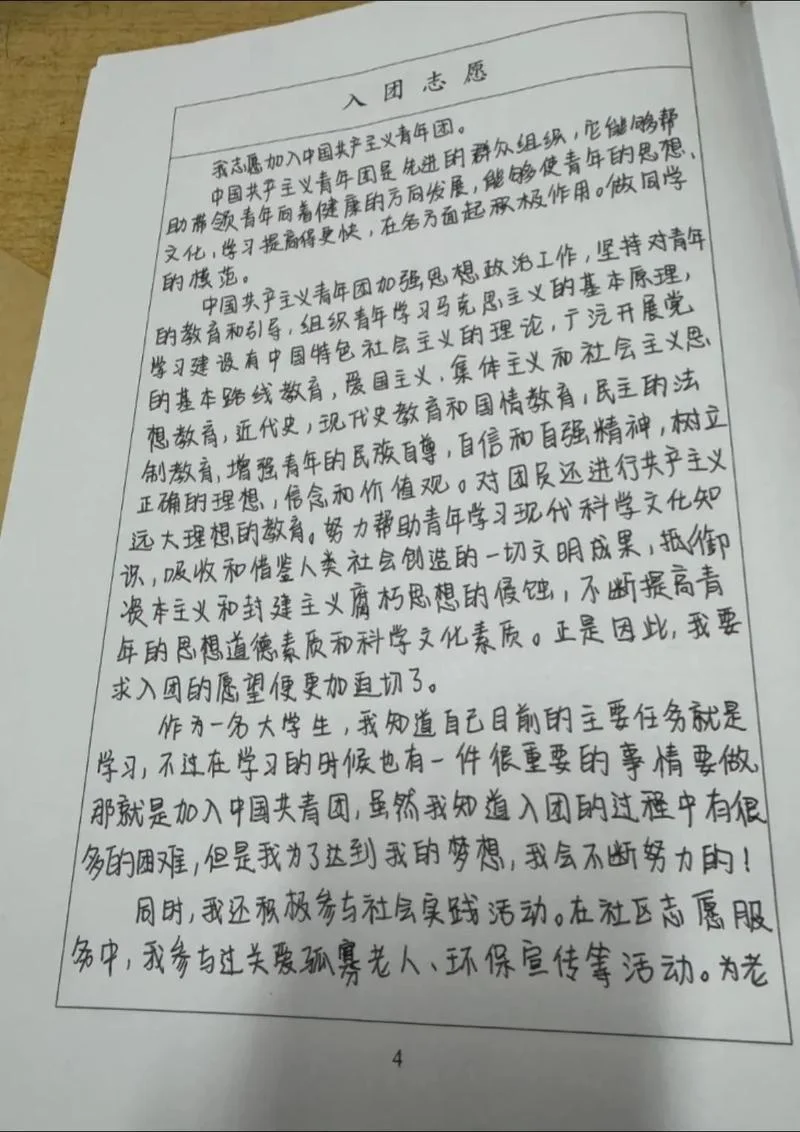 入团志愿
我志愿加入中国共产主义青年团。
中国共产主义青年团是先进的群众组织，它能够帮
助带领青年向着健康的方向发展，能够使青年的思想、
文化，学习提高得更快，在各方面起积极作用。做同学
的模范。
中国共产主义青年团加强思想政治工作，坚持对青年
的教育和引导，组织青年学习马克思主义的基本原理，
学习建设有中国特色社会主义的理论，广泛开展党
的基本路线教育，爱国主义，集体主义和社会主义思
想教育，近代史，现代史教育和国情教育，民主的法
制教育，增强青年的民族自尊，自信和自强精神，树立
正确的理想，信念和价值观。对团员还进行共产主义
远大理想的教育。努力帮助青年学习现代科学文化知
识，吸收和借鉴人类社会创造的一切文明成果，抵御
资本主义和封建主义腐朽思想的侵蚀，不断提高青
年的思想道德素质和科学文化素质。正是因此，我要
求入团的愿望便更加迫切了。
作为一名大学生，我知道自己目前的主要任务就是
学习，不过在学习的时候也有一件很重要的事情要做，
那就是加入中国共青团，虽然我知道入团的过程中有很
多的困难，但是我为了达到我的梦想，我会不断努力的！
同时，我还积极参与社会实践活动。在社区志愿服
务中，我参与过关爱孤寡老人、环保宣传等活动。为老
4